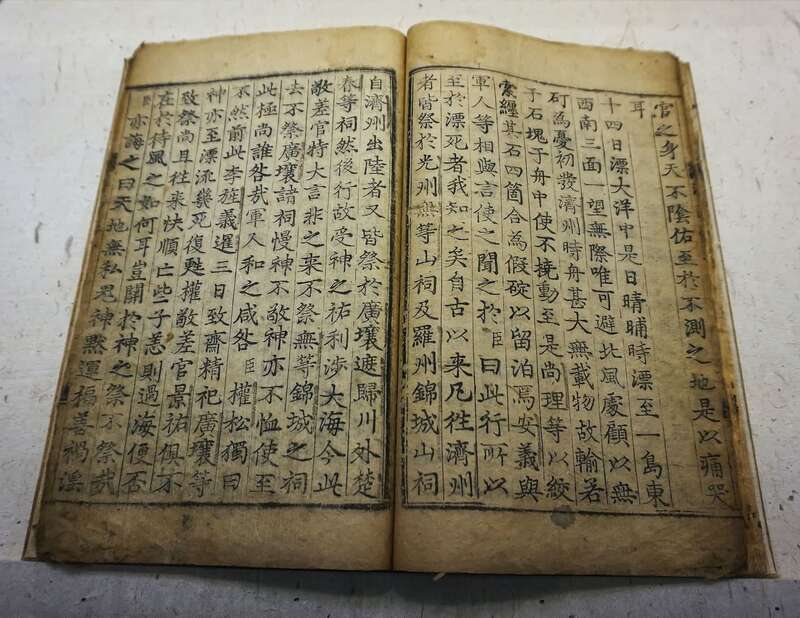 官之身天不陰佑至於不測之地是以痛哭
耳
十四日漂大洋中是日晴晡時漂至一島東
西南三面一望無際唯可避北風處顧以無
矴為憂初發濟州時舟甚大無載物故輸若
子石塊于舟中使不撓動至是尚理等以絞
索纏其石四箇合為假碇以留泊焉安義與
軍人等相與言使之聞之於臣曰此行所以
至於漂死者我知之矣自古以来凡徃濟州
者皆祭於光州無等山祠及羅州錦城山祠
自濟州出陸者又皆祭於廣壤遮歸川外楚
春等祠然後行故受神之祐利涉大海今此
敬差官特大言非之来不祭無等錦城之祠
去不祭廣壤諸祠慢神不敬神亦不恤使至
此極尚誰咎哉軍人和之咸咎臣權松獨曰
不然前此李旌義選三日致齋精祀廣壤等
神亦至漂流幾死復甦權敬差官景祐俱不
致祭尚且往来快順亡些子恙則過海便否
在於待風之如何耳豈關於神之祭不祭哉
臣亦誨之曰天地無私鬼神黙運福善禍淫